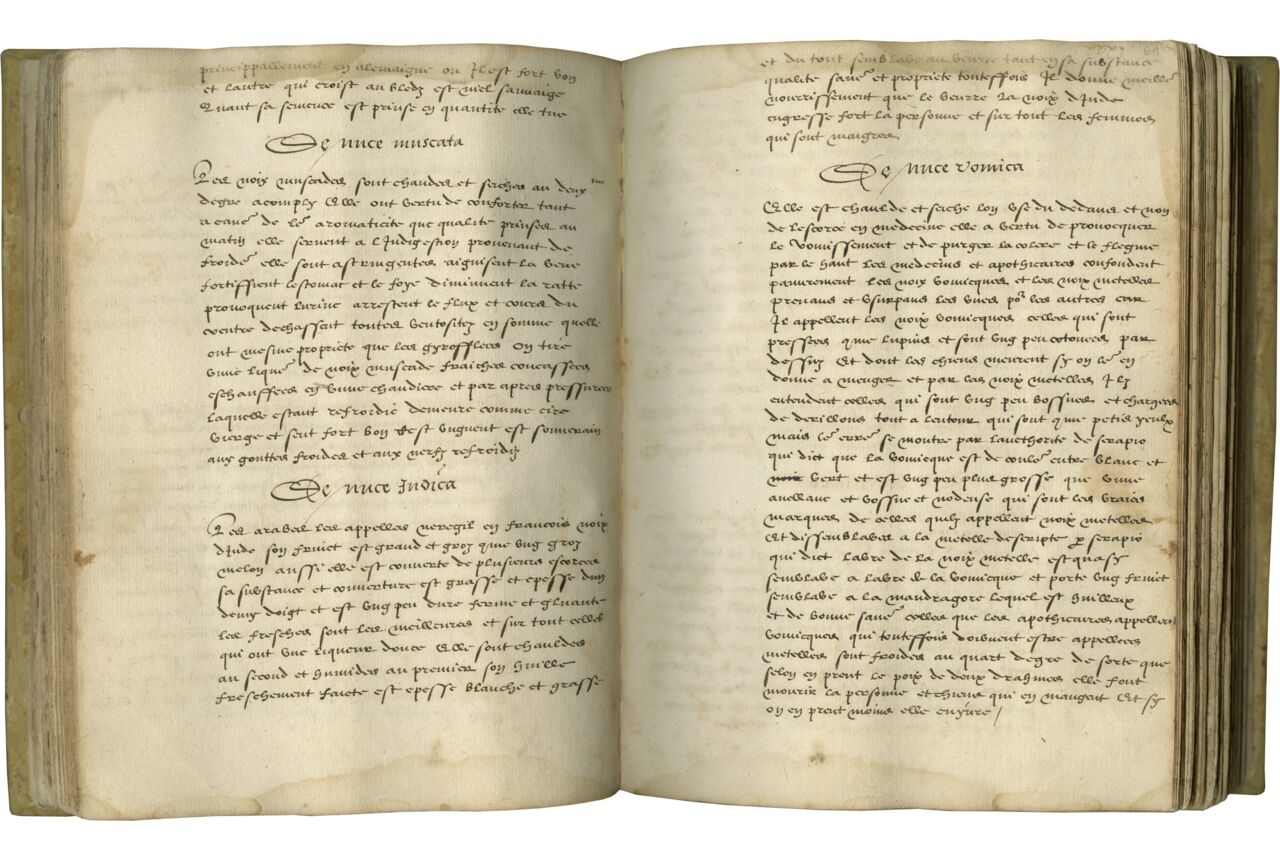 princippallement en alemaigne ou Il est fort bon
et lautre qui croist au bledz est niel sauuaige
Quant sa semence est prinse en quantite elle tue
De nuce muscata
Les noix muscades sont chaudes et seiches au deuxme
degre acomply Elle ont vertu de conforter tant
a cause de le aromaticite que qualite prinses au
matin elle seruent a lindigestion prouenant de
froide elle sont astringentes aiguisent la veue
fortiffient lestomac et le foye diminuent la ratte
prouoquent lurine arrestent le flux et cours du
ventre dechassent toutes ventositez en somme quelle
ont mesme propriete que les gyroffles On tire
vnne liqueur de noix muscade fraiches concassees
eschauffees en vnne chaudiere et par apres pressurees
laquelle estant refroidie demeure comme cire
vierge et sent fort bon cest vnguent est souuerain
aux gouttes froides et aux nerfz refroidiz
De nuce Indica
Les arabes les appelles neregil en francois noix
dinde son fruict est grand et groz qme vng groz
melon aussi elle est couuerte de plusieurs escorces
sa substance et couuerture est grasse et epesse dun
demy doigt et est vng peu dure ferme et gluante
les fresches sont les meilleures et sur tout celles
qui ont vne liqueur douce Elle sont chauldes
au second et humides au premier son huille
freschement faicte est epesse blanche et grasse
64
et du tout semblable au beurre tant en sa substance
qualite saueur et propriete touteffois Il donne meilleur
nourrissement que le beurre la noix dinde
engresse fort la personne et sur tout les femmes
qui sont maigres
De nuce vomica
Elle est chaulde et seiche lon vse du dedans et non
de lescorce en medecine elle a vertu de prouocquer
le vomissement et de purger la colere et le flegme
par le hault les medecins et apothicaires confondent
pauurement les noix vomicques et les noix metelles
prenans et vsurpans les vnes por les autres car
Il appellent les noix vomicques celles qui sont
pressees qme lupins et sont vng peu cotonees par
dessuz Et dont les chiens meurent sy on le en
donne a menger et par les noix metelles Ilz
entendent celles qui sont vng peu bossues et chargees
de derillons tout a lentour qui sont qme petis yeulx
mais le erreur se monstre par laucthorite de serapio
qui dict que la vomicque est de couleur entre blanc et
vert et est vng peu plus grosse que vnne
auellane et bossue et nodeuse qui sont les vraies
marques de celles quilz appellent noix metelles
Et dissemblables a la metelle descripte p serapio
qui dict labre de la noix metelle est quasy
semblable a labre de la vomicque et porte vng fruict
semblable a la mandragore lequel est huilleux
et de bonne saueur celles que les apothicaires appellent
vomicques qui touteffois doibuent estre appellees
metelles sont froides au quart degre de sorte que
selon en prent le poix de deux drahmes elle font
mourir la personne et chiens qui en mangent Et sy
on en prent moins elle enyure /